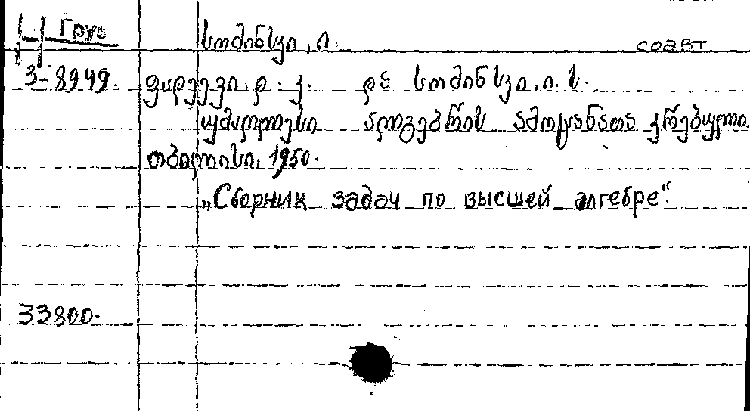 Груз
სომინსკი, ი. соавт
3-8949. ფადეევი. დ. კ. და სომინსკი. ი. ს.
უმაღლესი ალგებრის ამოცანათა კრებული
თბილისი, 1950.
„Сборник задач по высшей алгебре“.
33800.